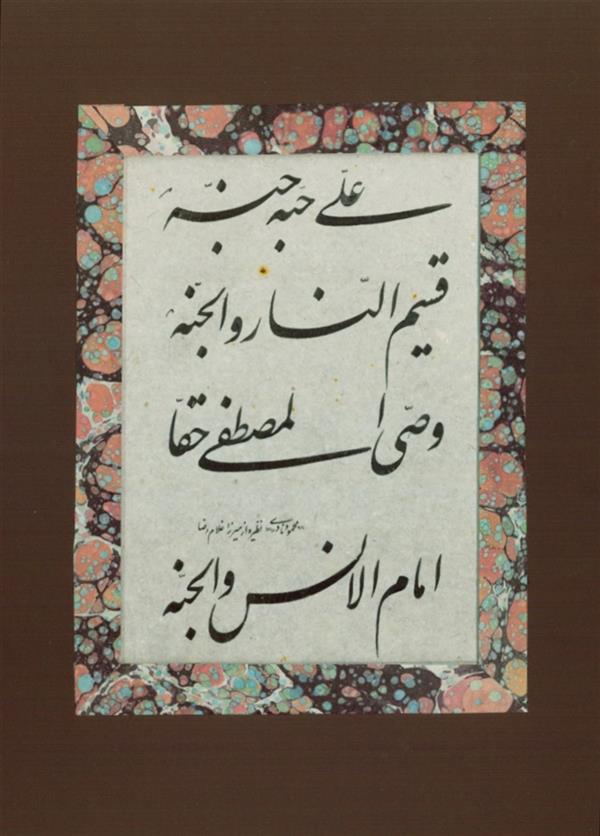 علی حبّه جنّه
قسیم النّار والجنّه
وصّی المصطفی حقّا
نظیره از میرزا غلام رضا
امام الانس والجنّه